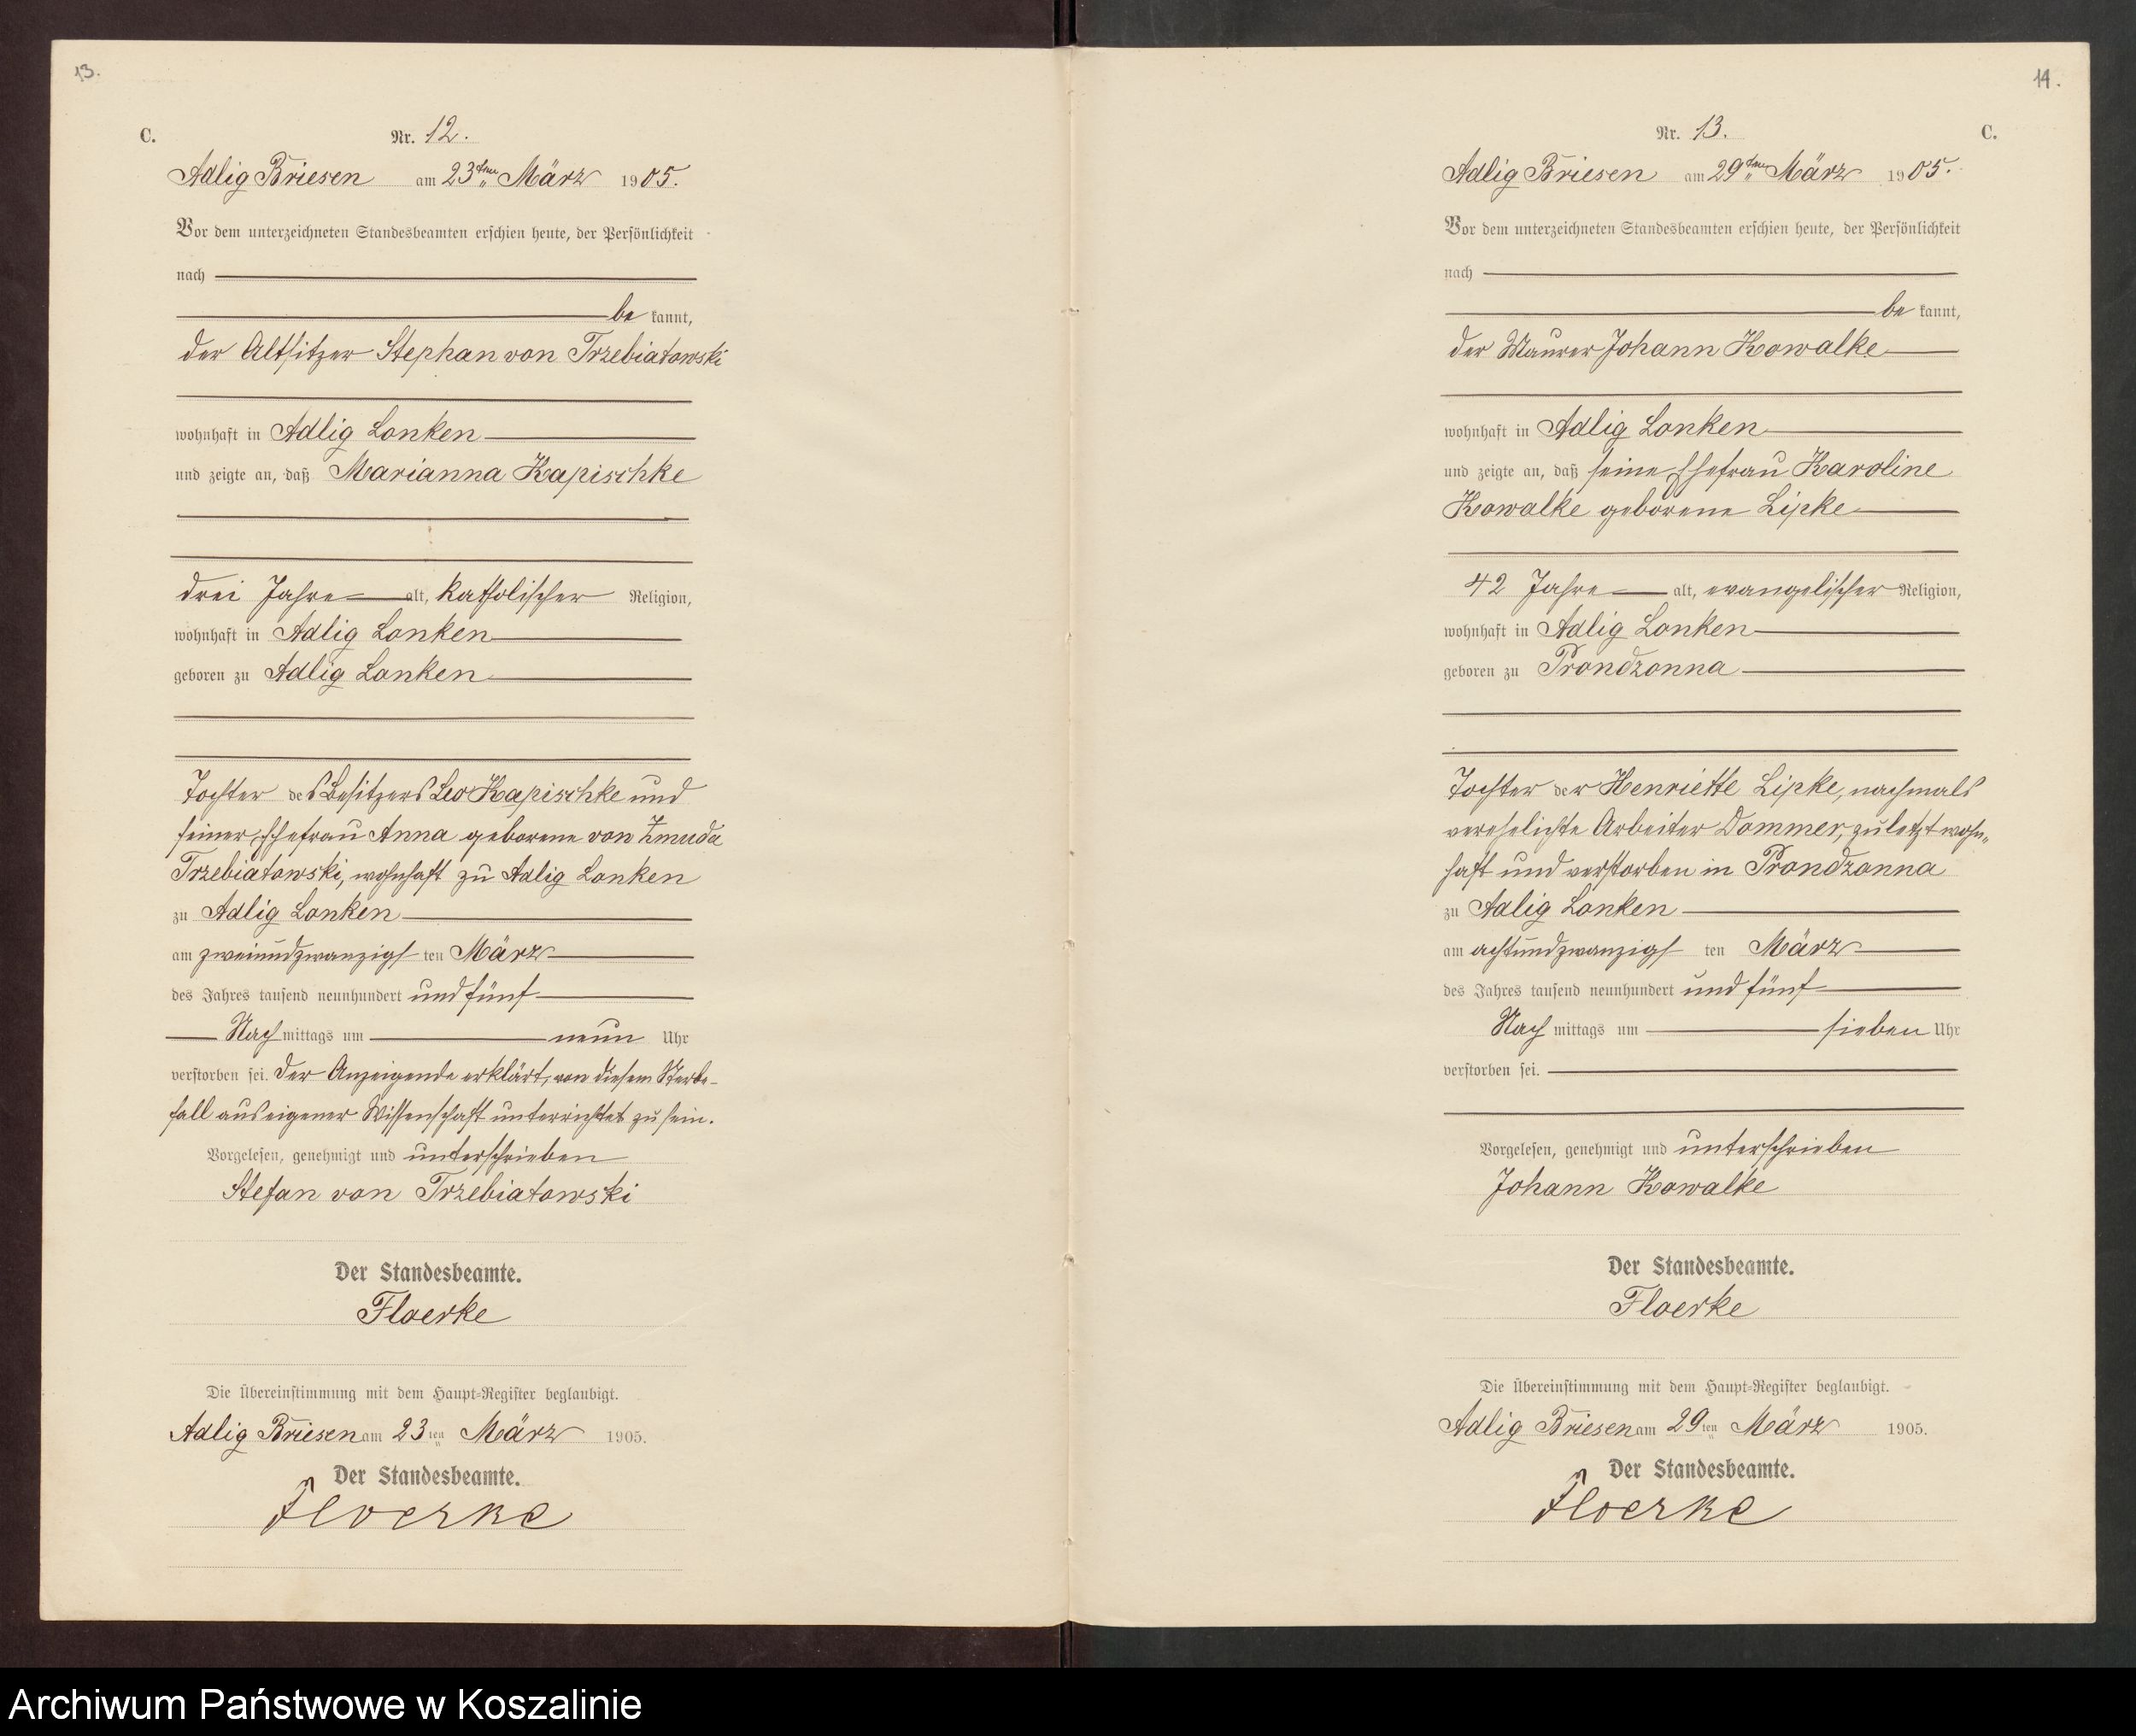 13.
C.
Nr. 12.
Adlig Briesen am 23ten März 1905.
Vor dem unterzeichneten Standesbeamten erschien heute, der Persönlichkeit
nach
be kannt,
der Altsitzer Stephan von Trzebiatowski
wohnhaft in Adlig Lonken
und zeigte an, daß Marianna Kapischke
drei Jahre alt, katholischer Religion,
wohnhaft in Adlig Lonken
geboren zu Adlig Lonken
Tochter des Besitzers Leo Kapischke und
seiner Ehefrau Anna geborene von Zmuda
Trzebiatowski, wohnhaft zu Adlig Lonken
zu Adlig Lonken
am zweiundzwanzigsten März
des Jahres tausend neunhundert und fünf
Nachmittags um neun Uhr
verstorben sei. Der Anzeigende erklärt, von diesem Sterbe-
fall aus eigener Wissenschaft unterrichtet zu sein.
Vorgelesen, genehmigt und unterschrieben
Stefan von Trzebiatowski
Der Standesbeamte.
Floerke
Die Übereinstimmung mit dem Haupt-Register beglaubigt.
Adlig Briesen am 23ten März 1905.
Der Standesbeamte.
Floerke
14.
Nr. 13.
C.
Adlig Briesen am 29ten März 1905.
Vor dem unterzeichneten Standesbeamten erschien heute, der Persönlichkeit
nach
be kannt,
der Maurer Johann Kowalke
wohnhaft in Adlig Lonken
und zeigte an, daß seine Ehefrau Karoline
Kowalke geborene Lipke
42 Jahre alt, evangelischer Religion,
wohnhaft in Adlig Lonken
geboren zu Prondzonna
Tochter der Henriette Lipke, nachmals
verehelichte Arbeiter Dommer, zuletzt wohn-
haft und verstorben in Prondzonna
zu Adlig Lonken
am achtundzwanzigsten März
des Jahres tausend neunhundert und fünf
Nachmittags um sieben Uhr
verstorben sei.
Vorgelesen, genehmigt und unterschrieben
Johann Kowalke
Der Standesbeamte.
Floerke
Die Übereinstimmung mit dem Haupt-Register beglaubigt.
Adlig Briesen am 29ten März 1905.
Der Standesbeamte.
Floerke
Archiwum Państwowe w Koszalinie